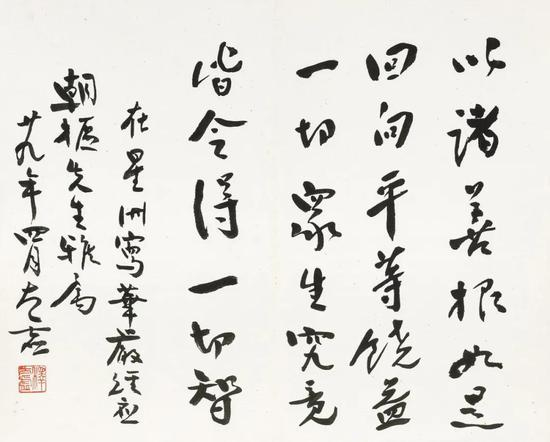 以諸善根如是
回向平等饒益
一切眾生究竟
皆令得一切智
在星洲寫華嚴經应
朝樞先生雅屬
廿九年四月太虛